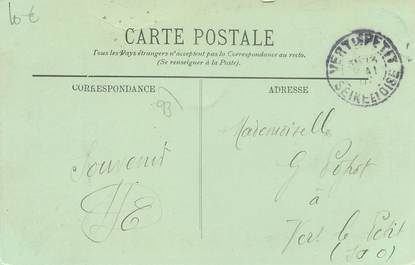 10 €
CARTE POSTALE
Tous les Pays étrangers n'acceptent pas la Correspondance au recto.
(Se renseigner à la Poste).
VERT-LE-PETIT
SEINE-ET-OISE
CORRESPONDANCE
93
Souvenir
ADRESSE
Mademoiselle
G
à
Vert le Petit
(S O)